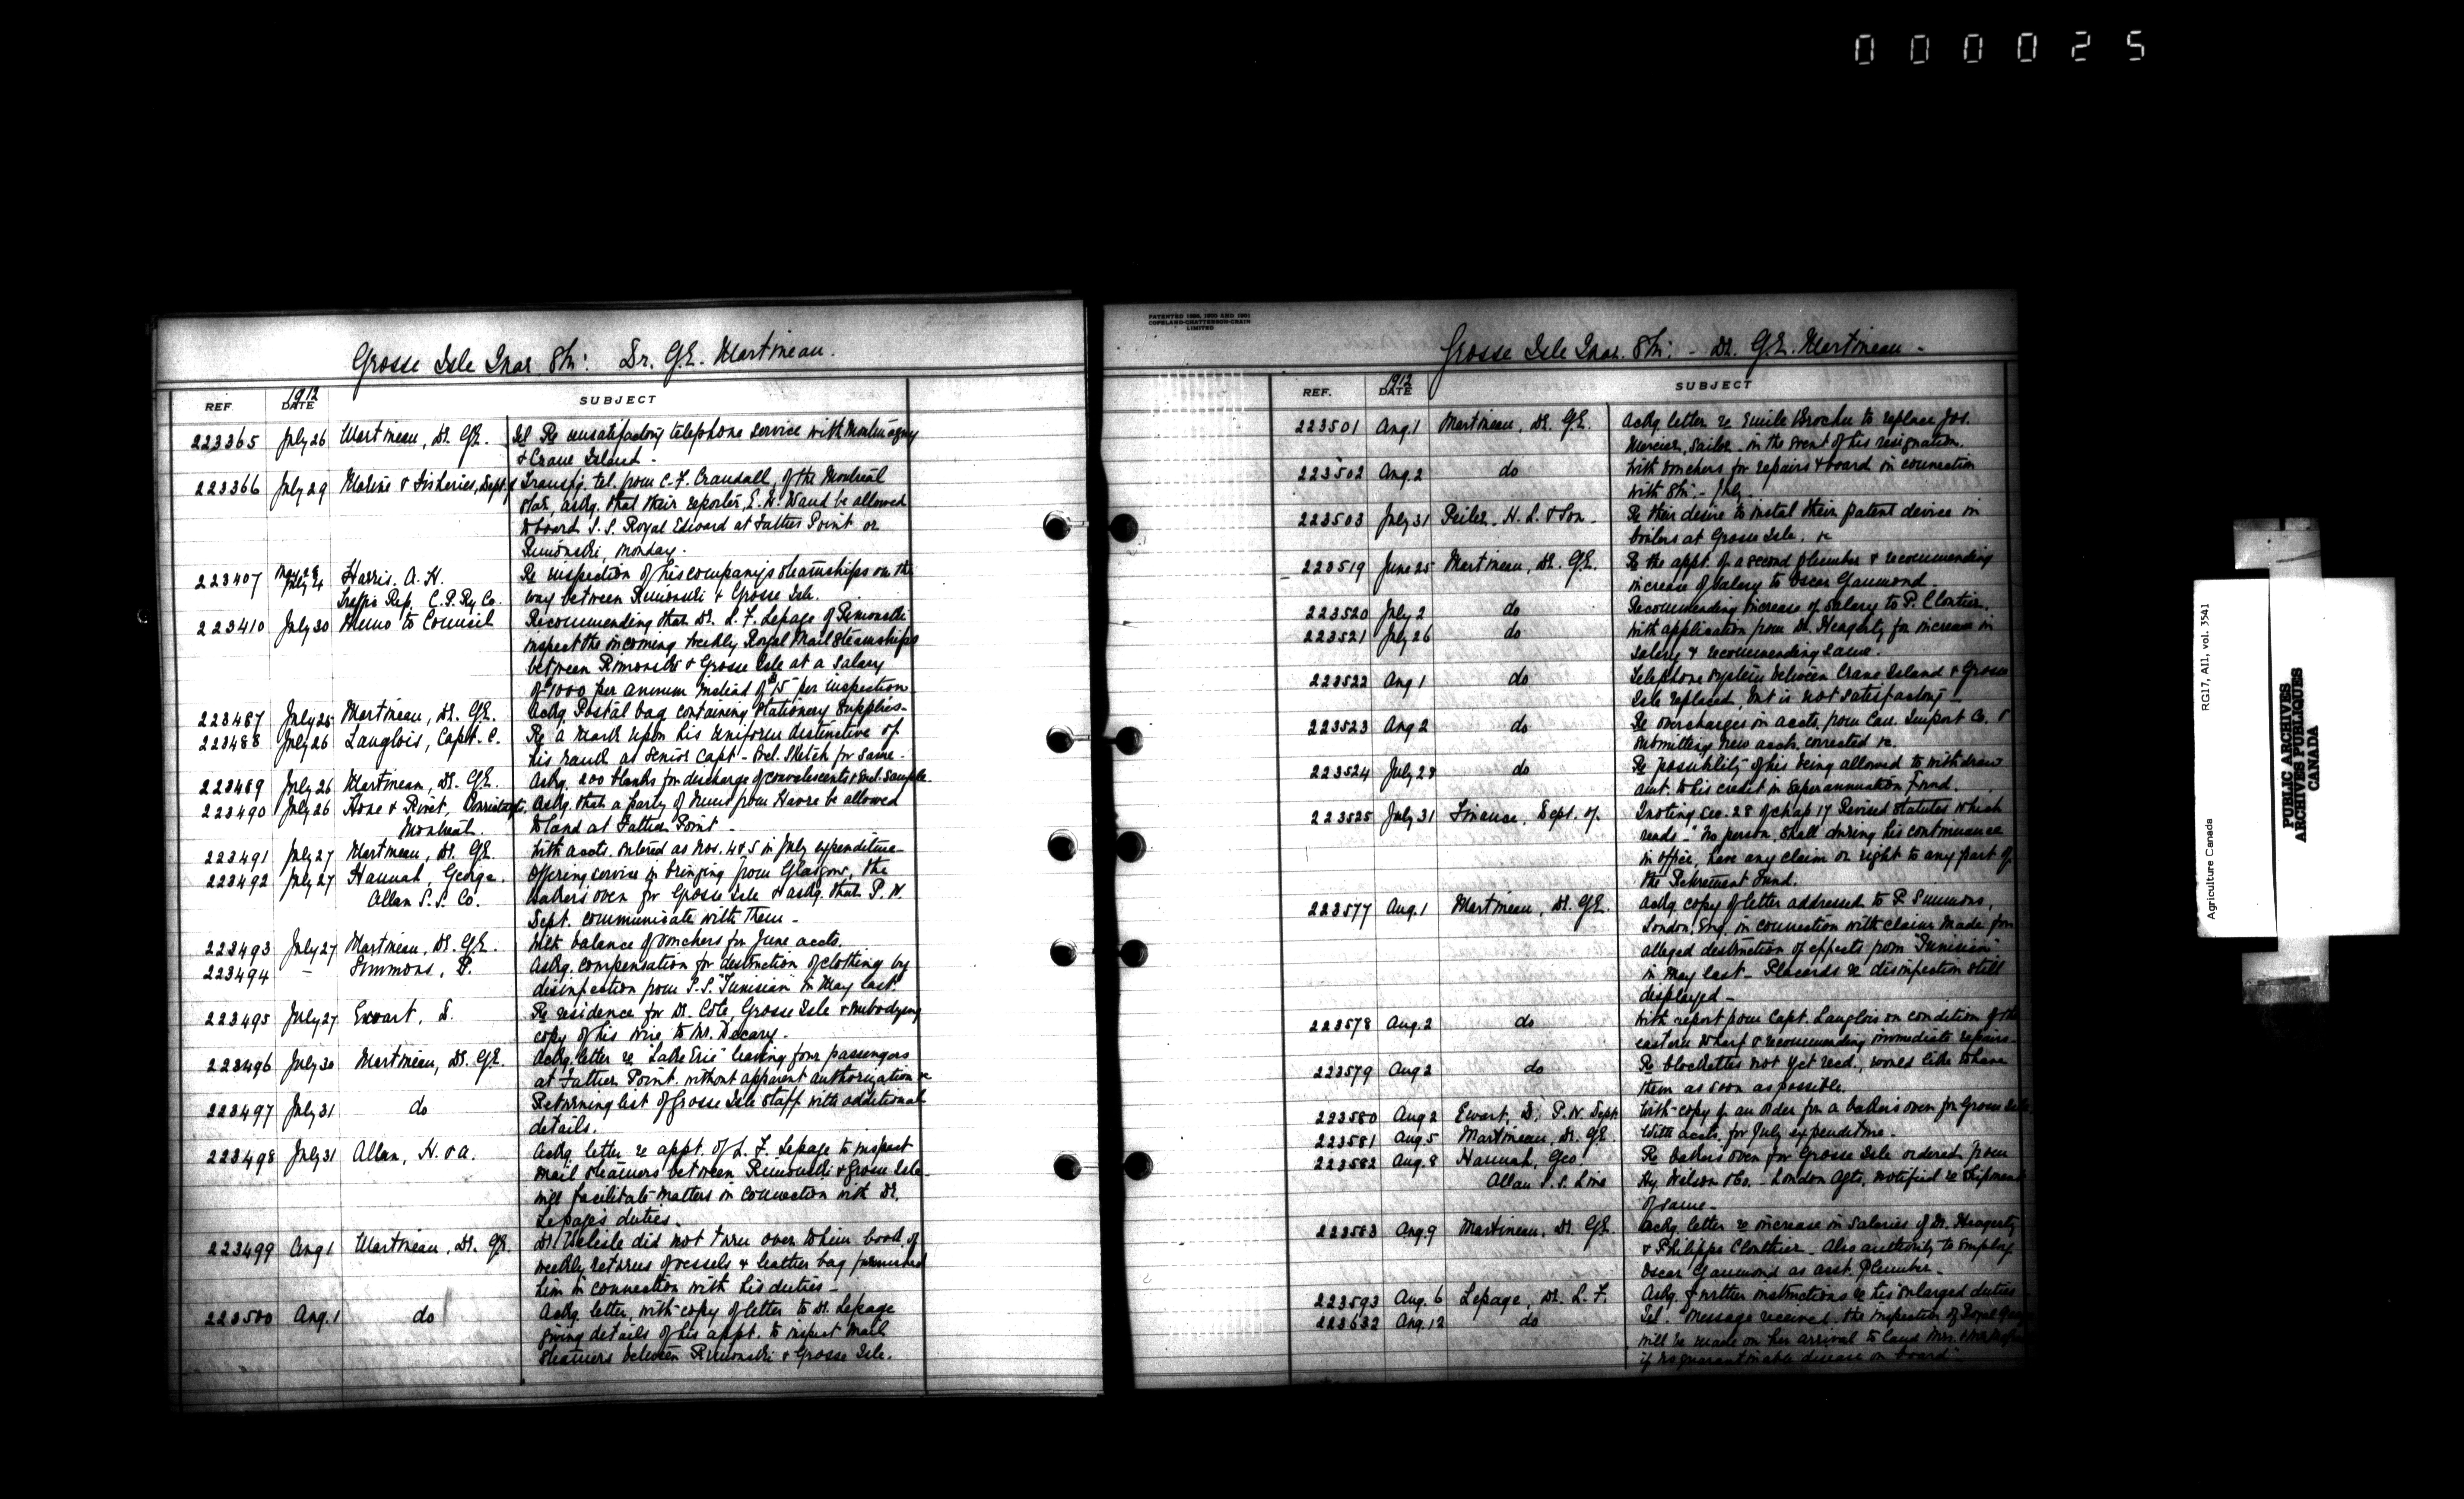 000025
Grosse Isle Quar. Stn: Dr. G.E. Martineau.
REF. 1912 DATE SUBJECT
223365 July 26 Martineau, Dr. G.E. Tel Re unsatisfactory telephone service with Montmagny
& Crane Island -
223366 July 29 Marine & Fisheries, Dept. of Transfg. tel. from C.F. Crandall, of the Montreal
Star, askg. that their reporter, E.N. Wand be allowed
to board S.S. Royal Edward at Father Point or
Rimouski, Monday.
223407 May 28 July 24 Harris, A.H. Re inspection of his company's steamships on the
Traffic Rep. C.P. Ry Co. way between Rimouski & Grosse Isle.
223410 July 30 Memo to Council Recommending that Dr. L.F. Lepage of Rimouski
inspect the incoming weekly Royal Mail Steamships
between Rimouski & Grosse Isle at a salary
of $1000 per annum instead of $15 per inspection
223487 July 25 Martineau, Dr. G.E. Ackg. Postal bag containing stationery supplies -
223488 July 26 Langlois, Capt. C. Re a mark upon his uniform distinctive of
his rank as Senior Capt - Encl. sketch for same -
223489 July 26 Martineau, Dr. G.E. Askg. 200 blanks for discharge of convalescents & encl. sample.
223490 July 26 Hone & Rivet, Askg. that a party of nuns from Havre be allowed
Montreal. to land at Father Point -
223491 July 27 Martineau, Dr. G.E. With accts. entered as Nos. 4 & 5 in July expenditure -
223492 July 27 Hannah, George. Offering service in bringing from Glasgow, the
Allan S.S. Co. bakers oven for Grosse Isle & askg. that P.W.
Dept. communicate with them -
223493 July 27 Martineau, Dr. G.E. With balance of vouchers for June accts.
223494 - Simmons, P. Askg. compensation for destruction of clothing by
disinfection from S.S. "Tunisian" in May last
223495 July 27 Ewart, D. Re residence for Dr. Côté, Grosse Isle & embodying
copy of his wire to Mr. Decary -
223496 July 30 Martineau, Dr. G.E. Ackg. letter re "Lake Erie" leaving four passengers
at Father Point without apparent authorization &c
223497 July 31 do Returning list of Grosse Isle staff with additional
details.
223498 July 31 Allan, H. & A. Ackg. letter re appt. of L.F. Lepage to inspect
mail steamers between Rimouski & Grosse Isle -
will facilitate matters in connection with Dr.
Lepage's duties -
223499 Aug 1 Martineau, Dr. G.E. Dr. Delisle did not turn over to him book of
weekly returns of vessels & leather bag furnished
him in connection with his duties -
223500 Aug. 1 do Ackg. letter, with copy of letter to Dr. Lepage
giving details of his appt. to inspect mail
steamers between Rimouski & Grosse Isle.
PATENTED 1898, 1900 AND 1901
COPELAND-CHATTERSON-CRAIN
LIMITED
Grosse Isle Quar. Stn: - Dr. G.E. Martineau -
REF. 1912 DATE SUBJECT
223501 Aug. 1 Martineau, Dr. G.E. Ackg. letter re Emile Brochu to replace Jos.
Mercier, sailor - in the event of his resignation.
223502 Aug. 2 do With vouchers for repairs & board in connection
with Stn: - July -
223503 July 31 Peiler, H.L. & Son - Re their desire to instal their patent device in
boilers at Grosse Isle. &c
223519 June 25 Martineau, Dr. G.E. Re the appt. of a second plumber & recommending
increase of salary to Oscar Gaumond -
223520 July 2 do Recommending increase of salary to P. Cloutier.
223521 July 26 do With application from Dr. Heagerty for increase in
salary & recommending same.
223522 Aug 1 do Telephone system between Crane Island & Grosse
Isle replaced, but is not satisfactory -
223523 Aug 2 do Re overcharges on accts. from Can. Import Co. &
submitting new accts. corrected &c.
223524 July 28 do Re possibility of his being allowed to withdraw
amt. to his credit in Superannuation Fund.
223525 July 31 Finance, Dept. of. Quoting Sec. 28 of chap 17 Revised Statutes which
reads - "No person, shall during his continuance
in office, have any claim or right to any part of
the Retirement Fund.
223577 Aug. 1 Martineau, Dr. G.E. Ackg. copy of letter addressed to P. Simmons,
London, Eng. in connection with claim made for
alleged destruction of effects from "Tunisian"
in May last - Placards re disinfection still
displayed -
223578 Aug. 2 do With report from Capt. Langlois on condition of the
eastern wharf & recommending immediate repairs -
223579 Aug 2 do Re blockettes not yet recd., would like to have
them as soon as possible.
223580 Aug 2 Ewart, D. P.W. Dept. With copy of an order for a baker's oven for Grosse Isle
223581 Aug. 5 Martineau, Dr. G.E. With accts. for July expenditure -
223582 Aug. 8 Hannah, Geo. Re bakers oven for Grosse Isle ordered from
Allan S.S. Line Hy. Wilson & Co. - London Agts. notified re shipment
of same -
223583 Aug. 9 Martineau, Dr. G.E. Ackg. letter re increase in salaries of Dr. Heagerty
& Philippe Clouthier - Also authority to employ
Oscar Gaumond as asst. plumber -
223593 Aug. 6 Lepage, Dr. L.F. Askg. further instructions re his enlarged duties
223632 Aug. 12 do Tel. "Message received, the inspection of Royal
will be made on her arrival to land Mrs.
if no quarantinable disease on board" -
Agriculture Canada RG17, AII, vol. 3541
PUBLIC ARCHIVES
ARCHIVES PUBLIQUES
CANADA